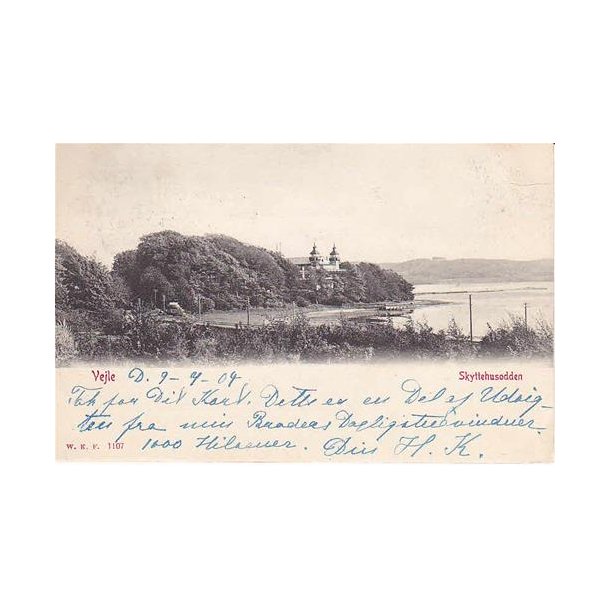 Vejle D. 9-4-04 Skyttehusodden
Tak for Dit Kort. Dette er en Del af Udsig-
ten fra min Broders Dagligstuevinduer.
W. K. F. 1107 1000 Hilsener. Din H. K.